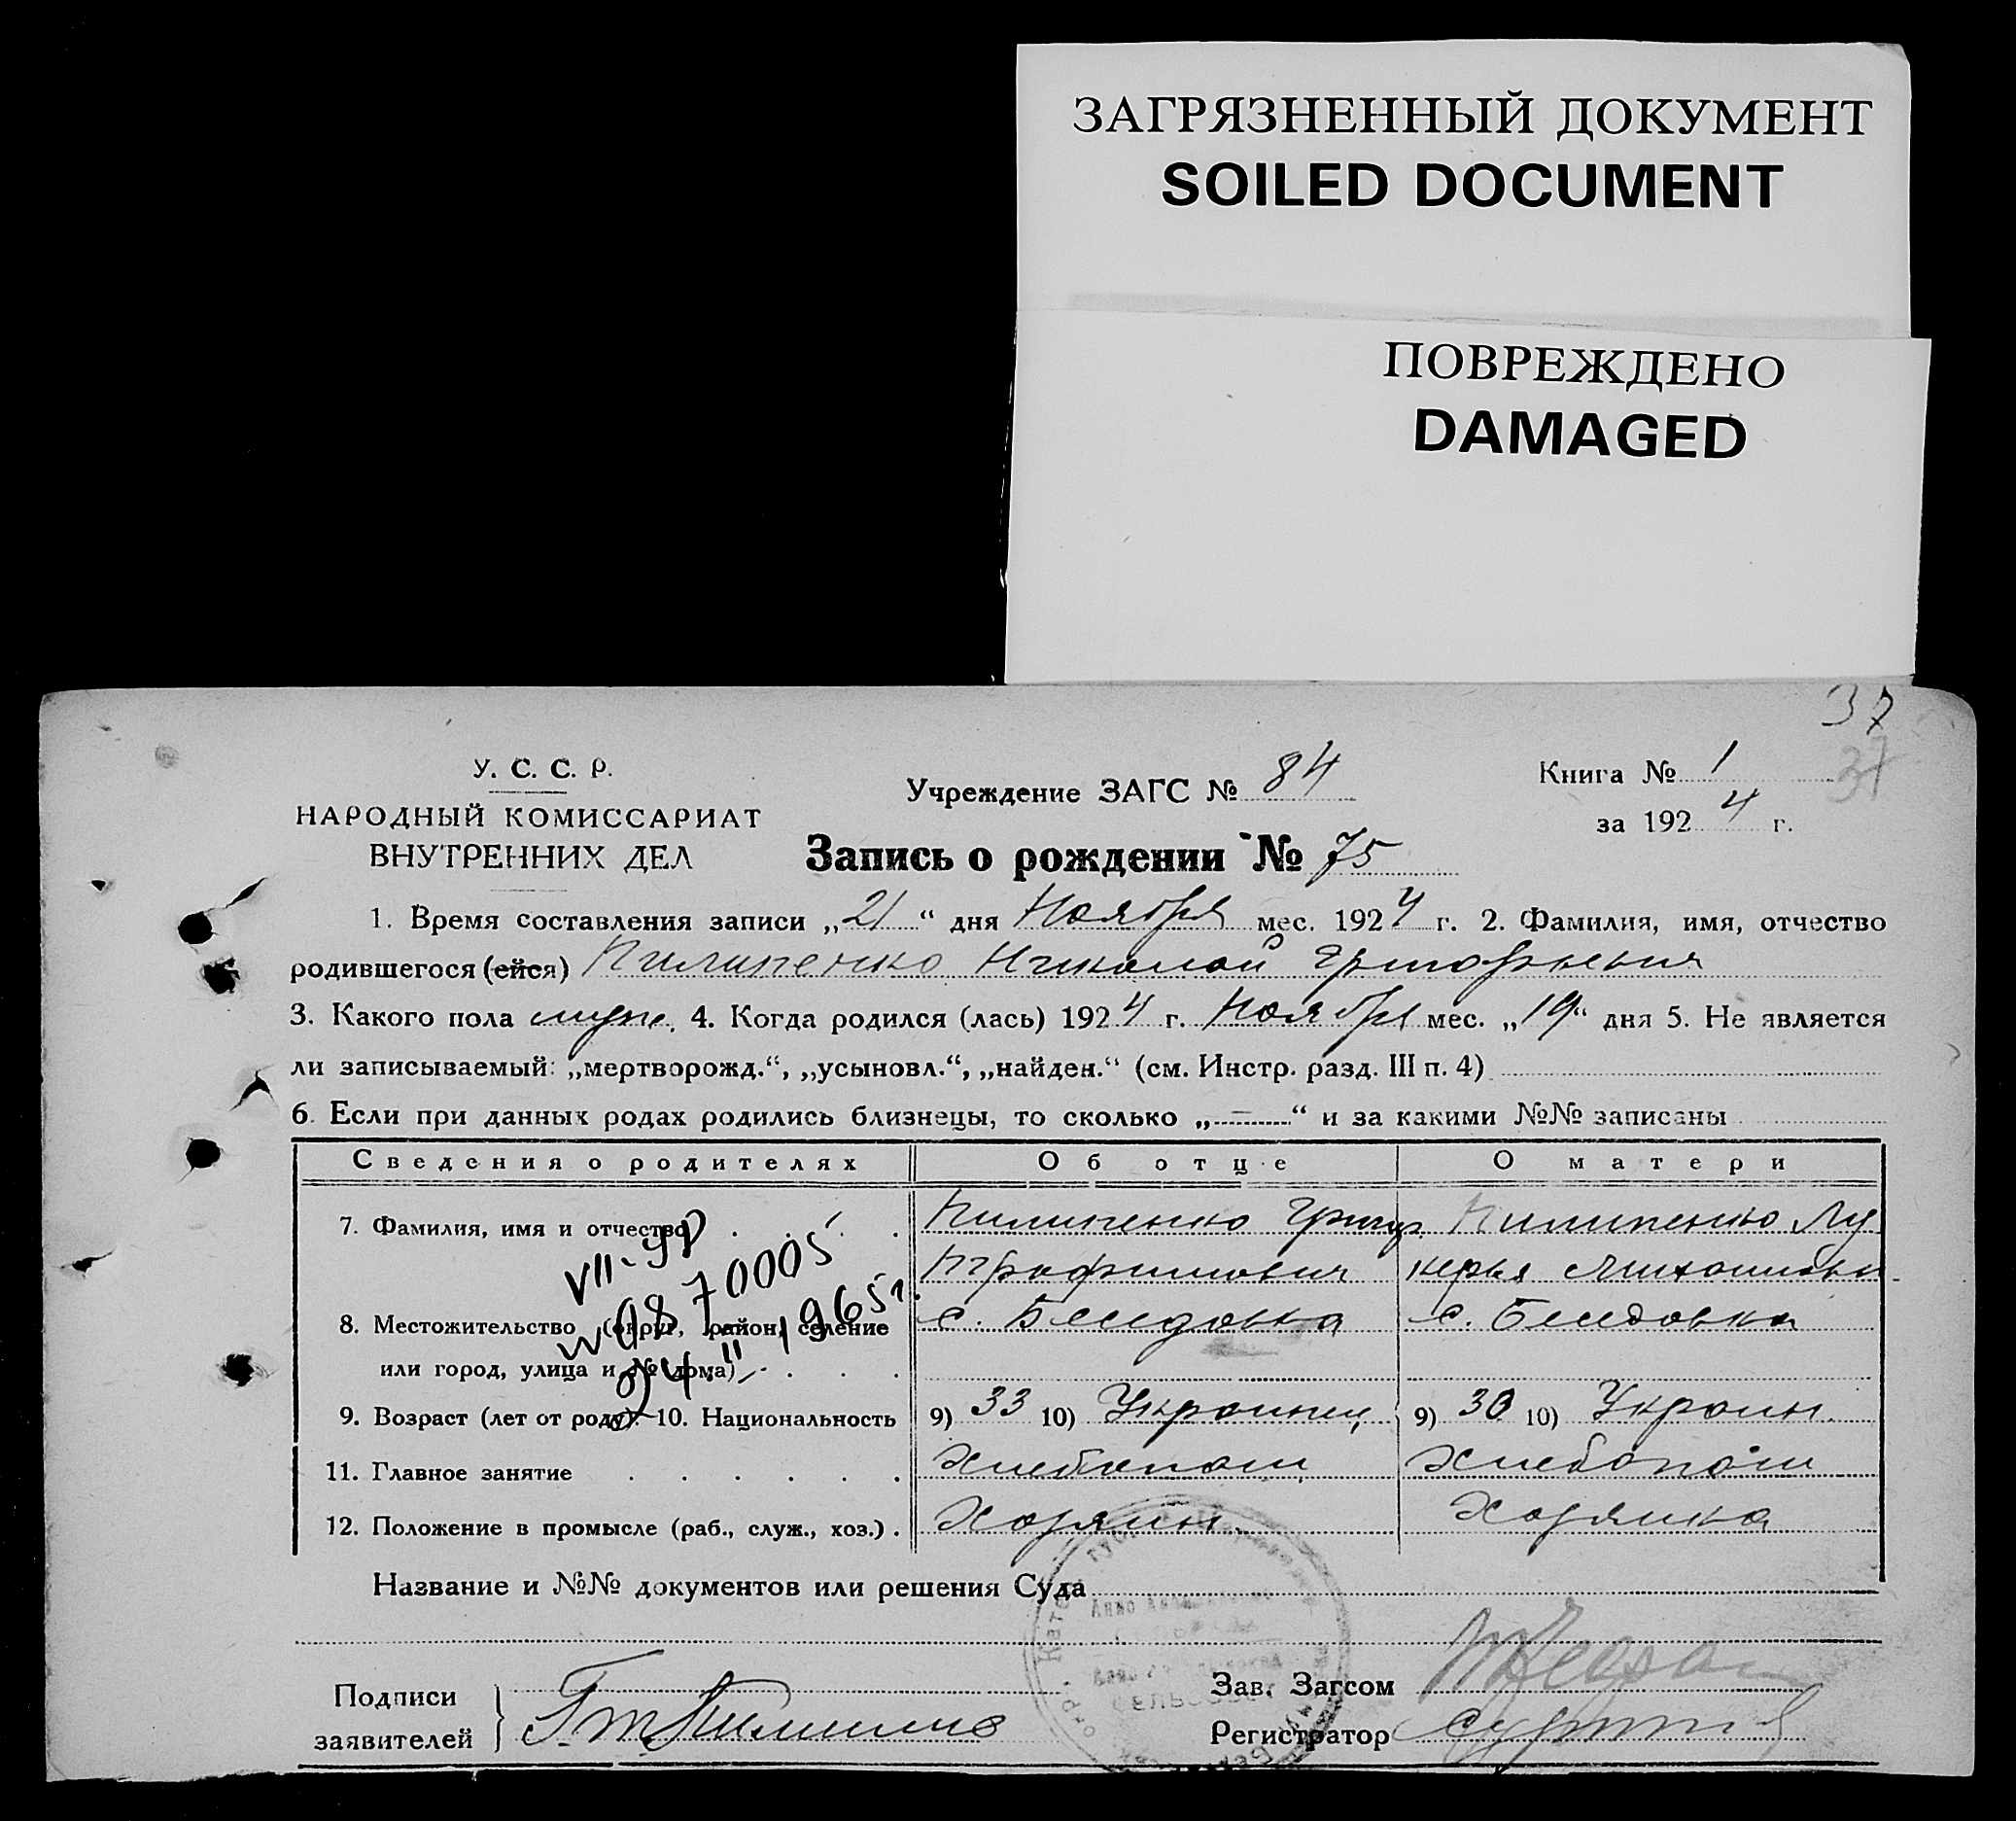 ЗАГРЯЗНЕННЫЙ ДОКУМЕНТ
SOILED DOCUMENT
ПОВРЕЖДЕНО
DAMAGED
37
37
У. С. С. Р.
НАРОДНЫЙ КОМИССАРИАТ
ВНУТРЕННИХ ДЕЛ
Учреждение ЗАГС № 84
Книга № 1
за 1924 г.
Запись о рождении № 75
1. Время составления записи „21“ дня Ноября мес. 1924 г. 2. Фамилия, имя, отчество
родившегося (ейся) Пилипенко Николай Григорьевич
3. Какого пола муж. 4. Когда родился (лась) 1924 г. Ноября мес. „19“ дня 5. Не является
ли записываемый: „мертворожд.“, „усыновл.“, „найден.“ (см. Инстр. разд. III п. 4)
6. Если при данных родах родились близнецы, то сколько „—“ и за какими №№ записаны
Сведения о родителях Об отце О матери
7. Фамилия, имя и отчество Пилипенко Григор. Пилипенко Лу
Трофимович керья
8. Местожительство (округ, район, селение с. с.
или город, улица и № дома)
9. Возраст (лет от роду). 10. Национальность 9) 33 10) Украинец 9) 30 10) Украин.
11. Главное занятие Хлебопаш. Хлебопаш
12. Положение в промысле (раб., служ., хоз.) Хозяин Хозяйка
Название и №№ документов или решения Суда
Подписи
заявителей
Зав. Загсом
Регистратор